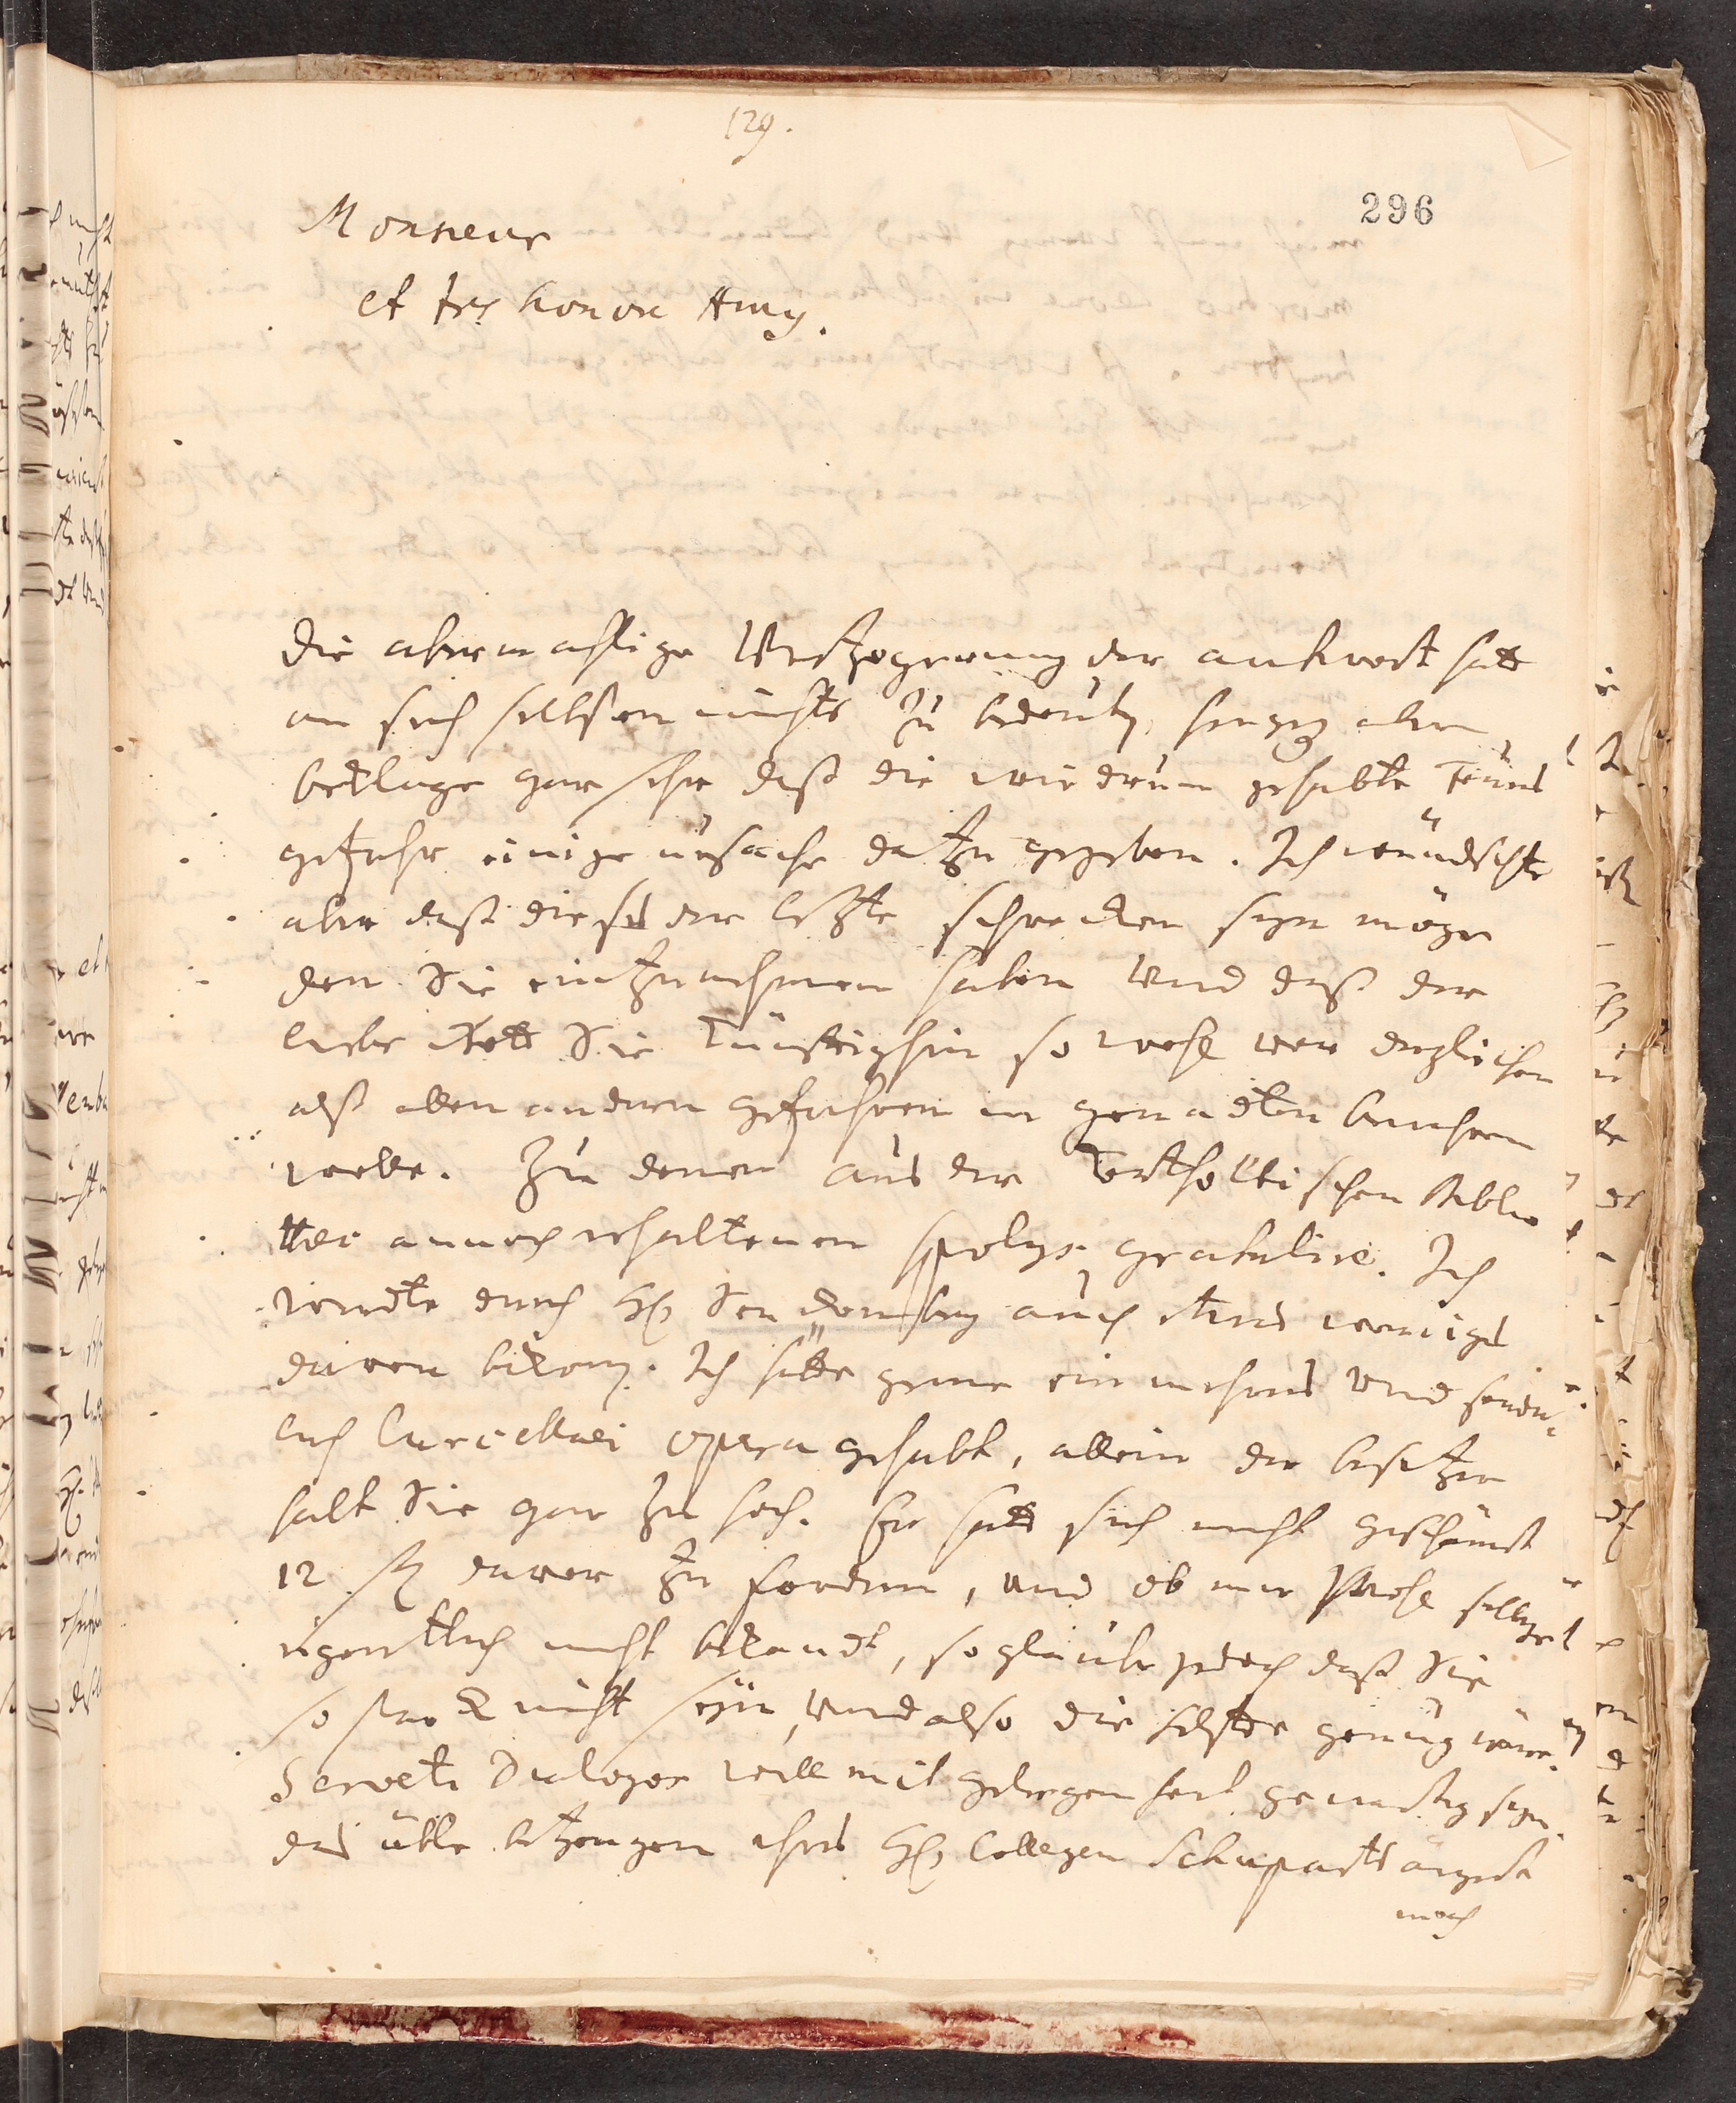 129.
296
Monsieur
et tres honore Amy.
Die abermahlige Vertzogerung der antwort hatt
an sich selbsten nichts zu bedeuten, hingegen aber
beklage gar sehr daß die wiederum gehabte feuers
gefahr einige ursache datzu gegeben. Ich wündschte
aber daß dieses der letzte schrecken seyn möge
den Sie eintzunehmen haben und daß der
liebe Gott Sie künftighin so wohl vor dergleichen
alß allen andern gefahren in genaden bewahren
wolle. Zu denen aus der Kortholtischen Biblio
thec annoch erhaltenen spolys gratulire. Ich
werdte durch H. von der auch etwas weniges
davon bekom. Ich hätte gerne ein mehres und sonder-
lich Curcellaei opera gehabt, allein der besitzer
halt Sie gar zu hoch. Er hatt sich nicht geschämet
12 davor zu fordern, und ob mir wohl selbiges
eigentlich nicht bekandt, so glaube jedoch daß Sie
so starck nicht seyn, und also die helfte genug wäre.
Serveti Dialogos will mit gelegenheit gewertig seyn.
das üble betzeugen ihres H. Collegen Schuparts ärgert
mich